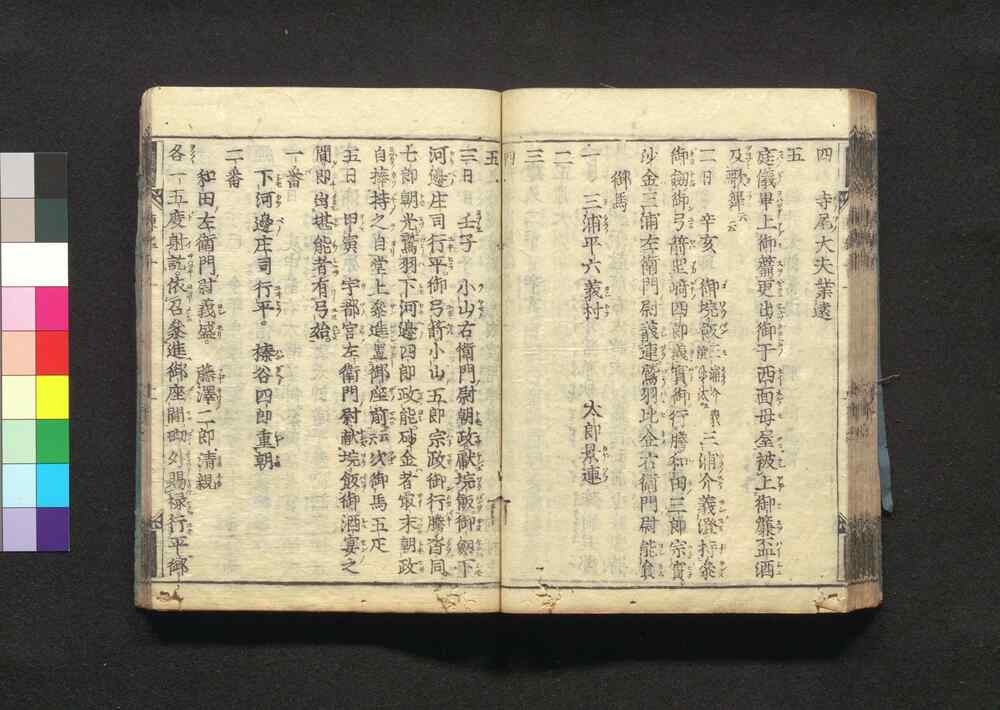 四　寺尾大夫業遠
五
庭儀畢上御簾更出御于西面母屋被上御簾盃酒
及歌舞云云
二日　辛亥　御埦飯三浦介義澄沙汰三浦介義澄持參
御劔御弓箭岡崎四郎義實御行騰和田三郎宗實
沙金三浦左衛門尉義連鷲羽比企右衛門尉能員
御馬
一　三浦平六義村　太郎景連
二
三
四
五
三日　壬子　小山右衛門尉朝政獻埦飯御劔下
河邊庄司行平御弓箭小山五郎宗政御行騰沓同
七郎朝光鷲羽下河邊四郎政能砂金者最末朝政
自捧持之自堂上參進置御座前云次御馬五疋
五日　甲寅　宇都宮左衛門尉獻埦飯御酒宴之
間即由堪能者有弓始
一番
下河邊庄司行平。　榛谷四郎重朝
二番
和田左衛門尉義盛。　藤澤二郎清親
各一五度射訖依召參進御座間砌外賜禄行平御